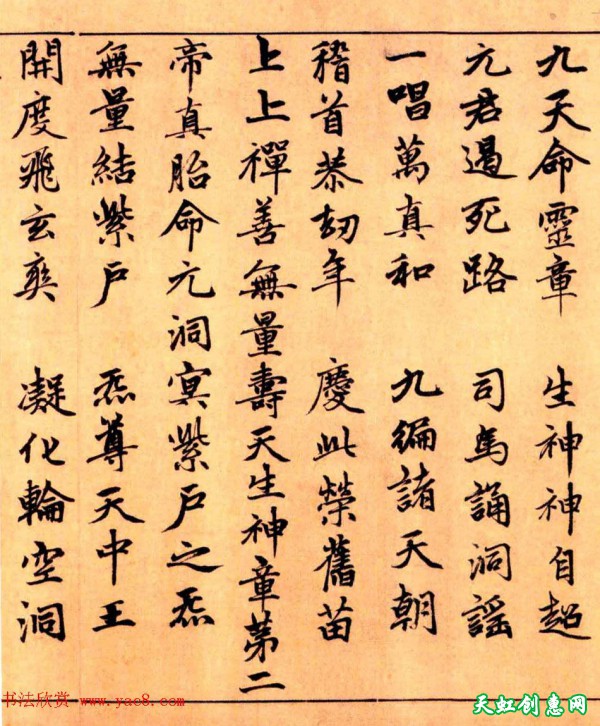 九天命靈章　生神神自超
元君遏死路　司馬誦洞謠
一唱萬真和　九編諸天朝
稽首恭劫年　慶此榮舊苗
上上禪善無量壽天生神章第二
帝真胎命元洞冥紫户之炁
無量結紫户　炁尊天中王
開度飛玄爽　凝化輪空洞
书法欣赏 www.yac8.com
天虹创惠网